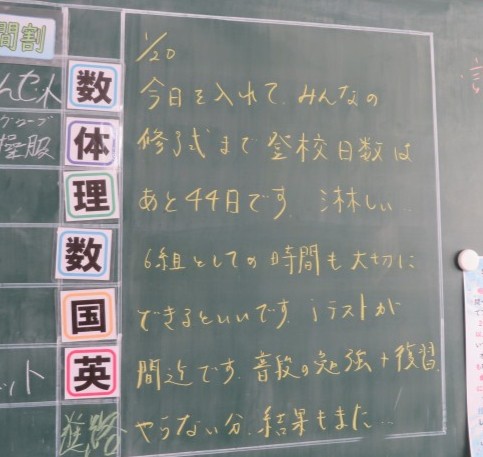 間割
数
体
理
数
国
英
操服
ット
1/20
今日を入れて、みんなの
修了式まで登校日数は
あと44日です。淋しい…
6組としての時間も大切に
できるといいです。テストが
間近です。普段の勉強+復習。
やらない分、結果もまた…